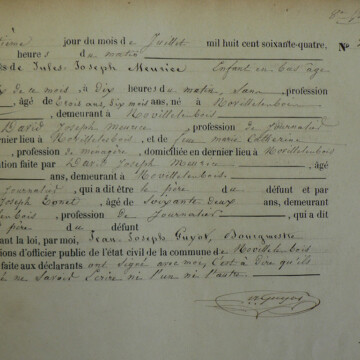 jour du mois de Juillet mil huit cent soixante-quatre, N°
heures du matin
de Jules-Joseph Meurice Enfant en bas âge
de ce mois à Dix heures du matin, Sans profession
, âgé de trois ans, dix mois ans, né à Novillelesbois
, demeurant à Novillelesbois
David Joseph Meurice, profession de Journalier
lieu à Novillelesbois, et de Marie Catherine
, profession de ménagère, domiciliée en dernier lieu à Novillelesbois
ation faite par David Joseph Meurice, âgé
ans, demeurant à Novillelesbois
Journalier, qui a dit être le père du défunt et par
Joseph âgé de Soixante deux ans, demeurant
bois, profession de Journalier, qui a dit
père du défunt
ant la loi, par moi, Jean Joseph Guyot, Bourgmestre
ions d'officier public de l'état civil de la commune de Novillelesbois
faite aux déclarants ont Signé avec moi, C'est à dire qu'ils
ne Savoir Écrire ne l'un ne l'autre
Guyot